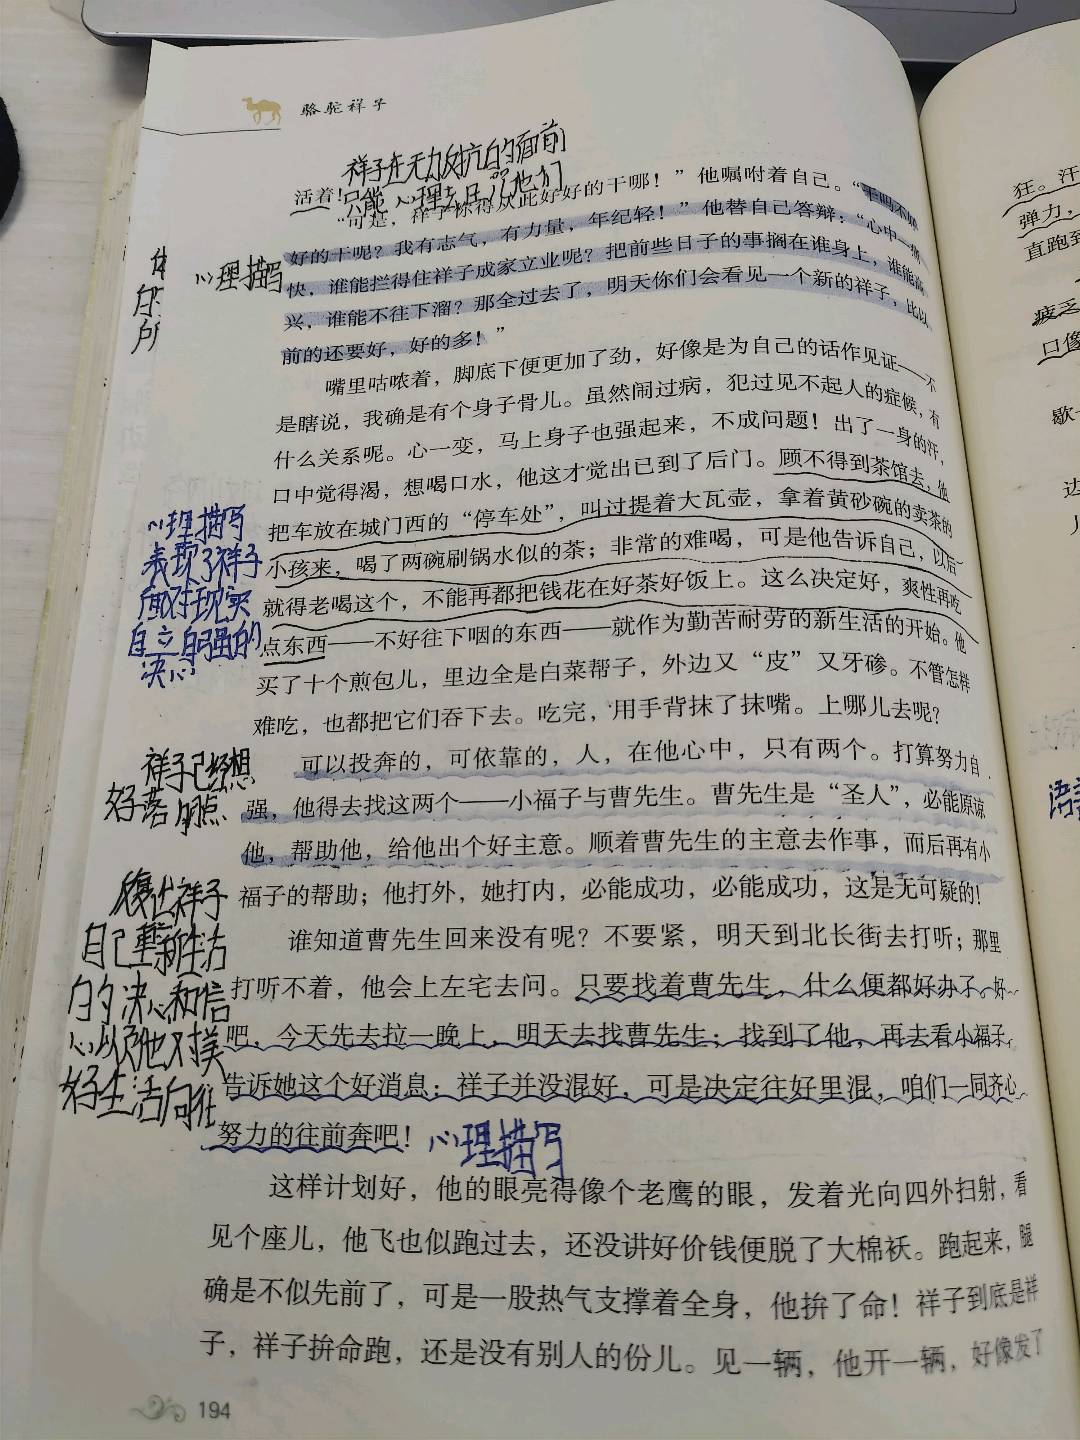 骆驼祥子
祥子在无力反抗的面前
只能心理去日 他们
活着！
“可是，祥子你得从此好好的干哪！”他嘱咐着自己。“干吗不好
好的干呢？我有志气，有力量，年纪轻！”他替自己答辩：“心中一痛
快，谁能拦得住祥子成家立业呢？把前些日子的事搁在谁身上，谁能高
兴，谁能不往下溜？那全过去了，明天你们会看见一个新的祥子，比以
前的还要好，好的多！”
心理描写
嘴里咕哝着，脚底下便更加了劲，好像是为自己的话作见证——不
是瞎说，我确是有个身子骨儿。虽然闹过病，犯过见不起人的症候，有
什么关系呢。心一变，马上身子也强起来，不成问题！出了一身的汗，
口中觉得渴，想喝口水，他这才觉出已到了后门。顾不得到茶馆去，他
把车放在城门西的“停车处”，叫过提着大瓦壶，拿着黄砂碗的卖茶的
小孩来，喝了两碗刷锅水似的茶；非常的难喝，可是他告诉自己，以后
就得老喝这个，不能再都把钱花在好茶好饭上。这么决定好，爽性再吃
点东西——不好往下咽的东西——就作为勤苦耐劳的新生活的开始。他
买了十个煎包儿，里边全是白菜帮子，外边又“皮”又牙碜。不管怎样
难吃，也都把它们吞下去。吃完，用手背抹了抹嘴。上哪儿去呢？
心理描写
表现了祥子
面对现实
自立自强的
决心
可以投奔的，可依靠的，人，在他心中，只有两个。打算努力自
强，他得去找这两个——小福子与曹先生。曹先生是“圣人”，必能原谅
他，帮助他，给他出个好主意。顺着曹先生的主意去作事，而后再有小
福子的帮助；他打外，她打内，必能成功，必能成功，这是无可疑的！
祥子已经想
好落脚点
谁知道曹先生回来没有呢？不要紧，明天到北长街去打听；那里
打听不着，他会上左宅去问。只要找着曹先生，什么便都好办了。好
吧，今天先去拉一晚上，明天去找曹先生；找到了他，再去看小福子，
告诉她这个好消息：祥子并没混好，可是决定往好里混，咱们一同齐心
努力的往前奔吧！
心理描写
祥子
自己重新生活
的决心和信
心以及他对美
好生活向往
这样计划好，他的眼亮得像个老鹰的眼，发着光向四外扫射，看
见个座儿，他飞也似跑过去，还没讲好价钱便脱了大棉袄。跑起来，腿
确是不似先前了，可是一股热气支撑着全身，他拚了命！祥子到底是祥
子，祥子拚命跑，还是没有别人的份儿。见一辆，他开一辆，好像发了
194
狂。汗
弹力，
直跑到
疲乏
口像
歇
边